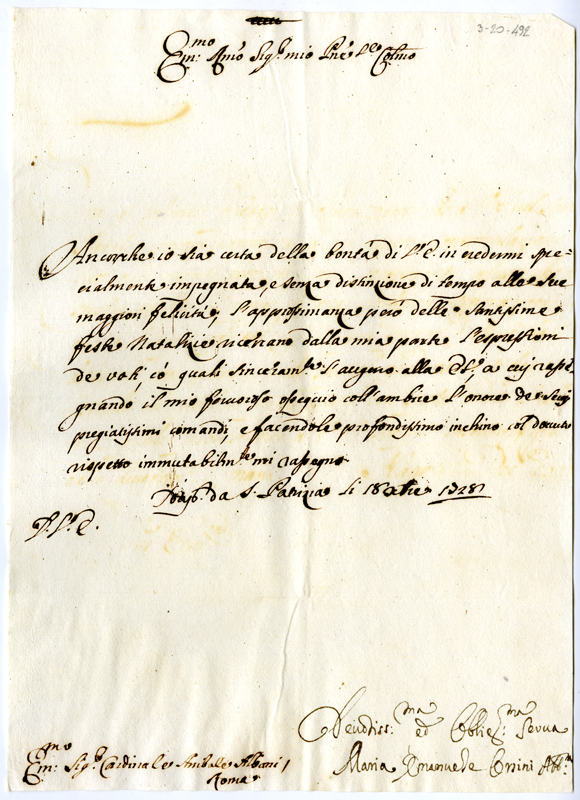 3-20-492
Em:mo Rmo Sig.r mio Pne Colmo
Ancorche io sia certa della bontà di V.E. in credermi spe=
cialmente impegnata, e senza distinzione di tempo alle sue
maggiori felicità, l'approssimanza però delle santissime
feste Natalizie ricercano dalla mia parte l'espressioni
de voti, co quali sinceram.te l'auguro alla E.V., a cui rasse=
gnando il mio fervoroso ossequio coll'ambire l'onore de suoi
pregiatissimi comandi, e facendole profondissimo inchino col dovuto
rispetto immutabilm.te mi rassegno
da S. Patrizia li 18 Xbre 1728
D. V. E.
Deuotiss:ma ed Obblig:ma Serua
Maria Emanuele Orsini Abb.a
Em:mo Sig.r Cardinale Anibale Albani /
Roma